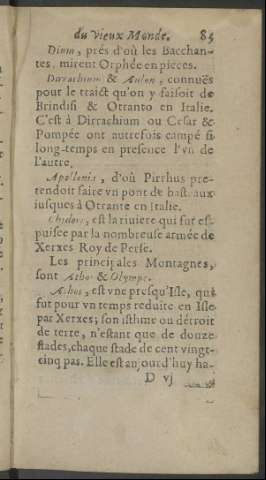 du Vieux Monde. 85
Dium, prés d'où les Bacchan-
tes, mirent Orphée en pieces.
Dirrachium & Aulon, connuës
pour le traict qu'on y faisoit de
Brindisi & Otranto en Italie.
C'est à Dirrachium ou Cesar &
Pompée ont autrefois campé si
long-temps en presence l'vn de
l'autre.
Apollonie, d'où Pirrhus pre-
tendoit faire vn pont de bast. aux
iusques à Otrante en Italie.
Chidore, est la riuiere qui fut es-
puisee par la nombreuse armée de
Xerxes Roy de Perse.
Les principales Montagnes,
sont Athos & Olympe.
Athos, est vne presqu'Isle, qui
fut pour vn temps reduite en Isle
par Xerxes; son isthme ou détroit
de terre, n'estant que de douze
stades, chaque stade de cent vingt-
cinq pas. Elle est aujourd'huy ha-
D vj